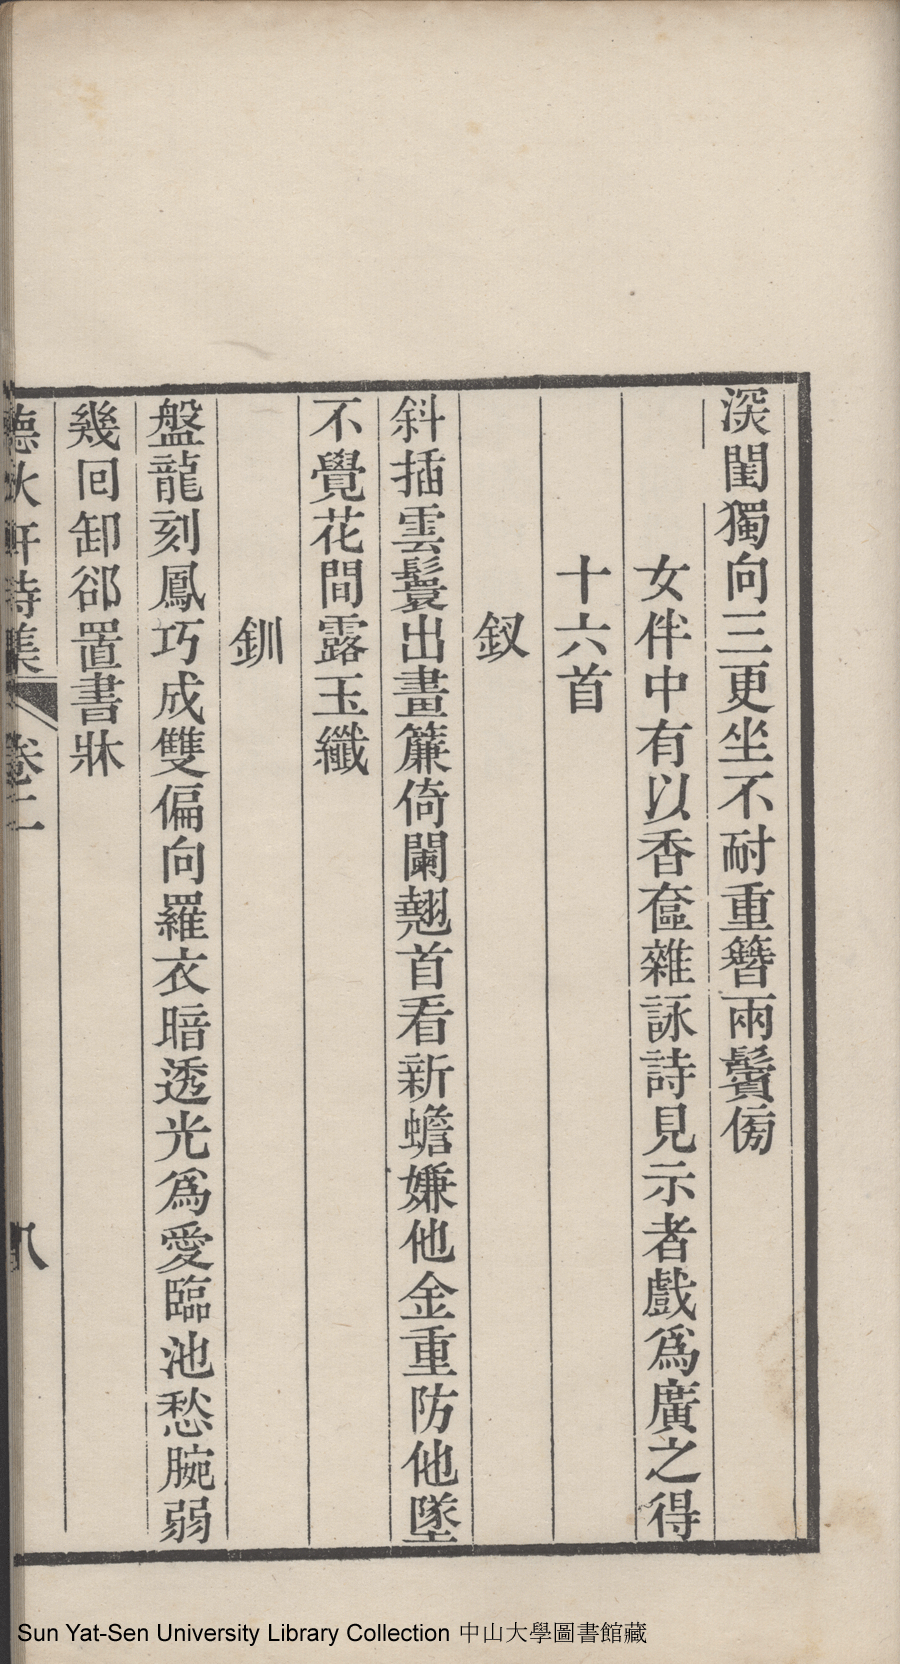 深閨獨向三更坐不耐重簪兩鬢傍
女伴中有以香奩雜詠詩見示者戲爲廣之得
十六首
釵
斜插雲鬟出畫簾倚闌翹首看新蟾嫌他金重防他墜
不覺花間露玉纖
釧
盤龍刻鳳巧成雙偏向羅衣暗透光爲愛臨池愁腕弱
幾回卸郤置書牀
聽秋軒詩集 卷二 八
Sun Yat-Sen University Library Collection 中山大學圖書館藏